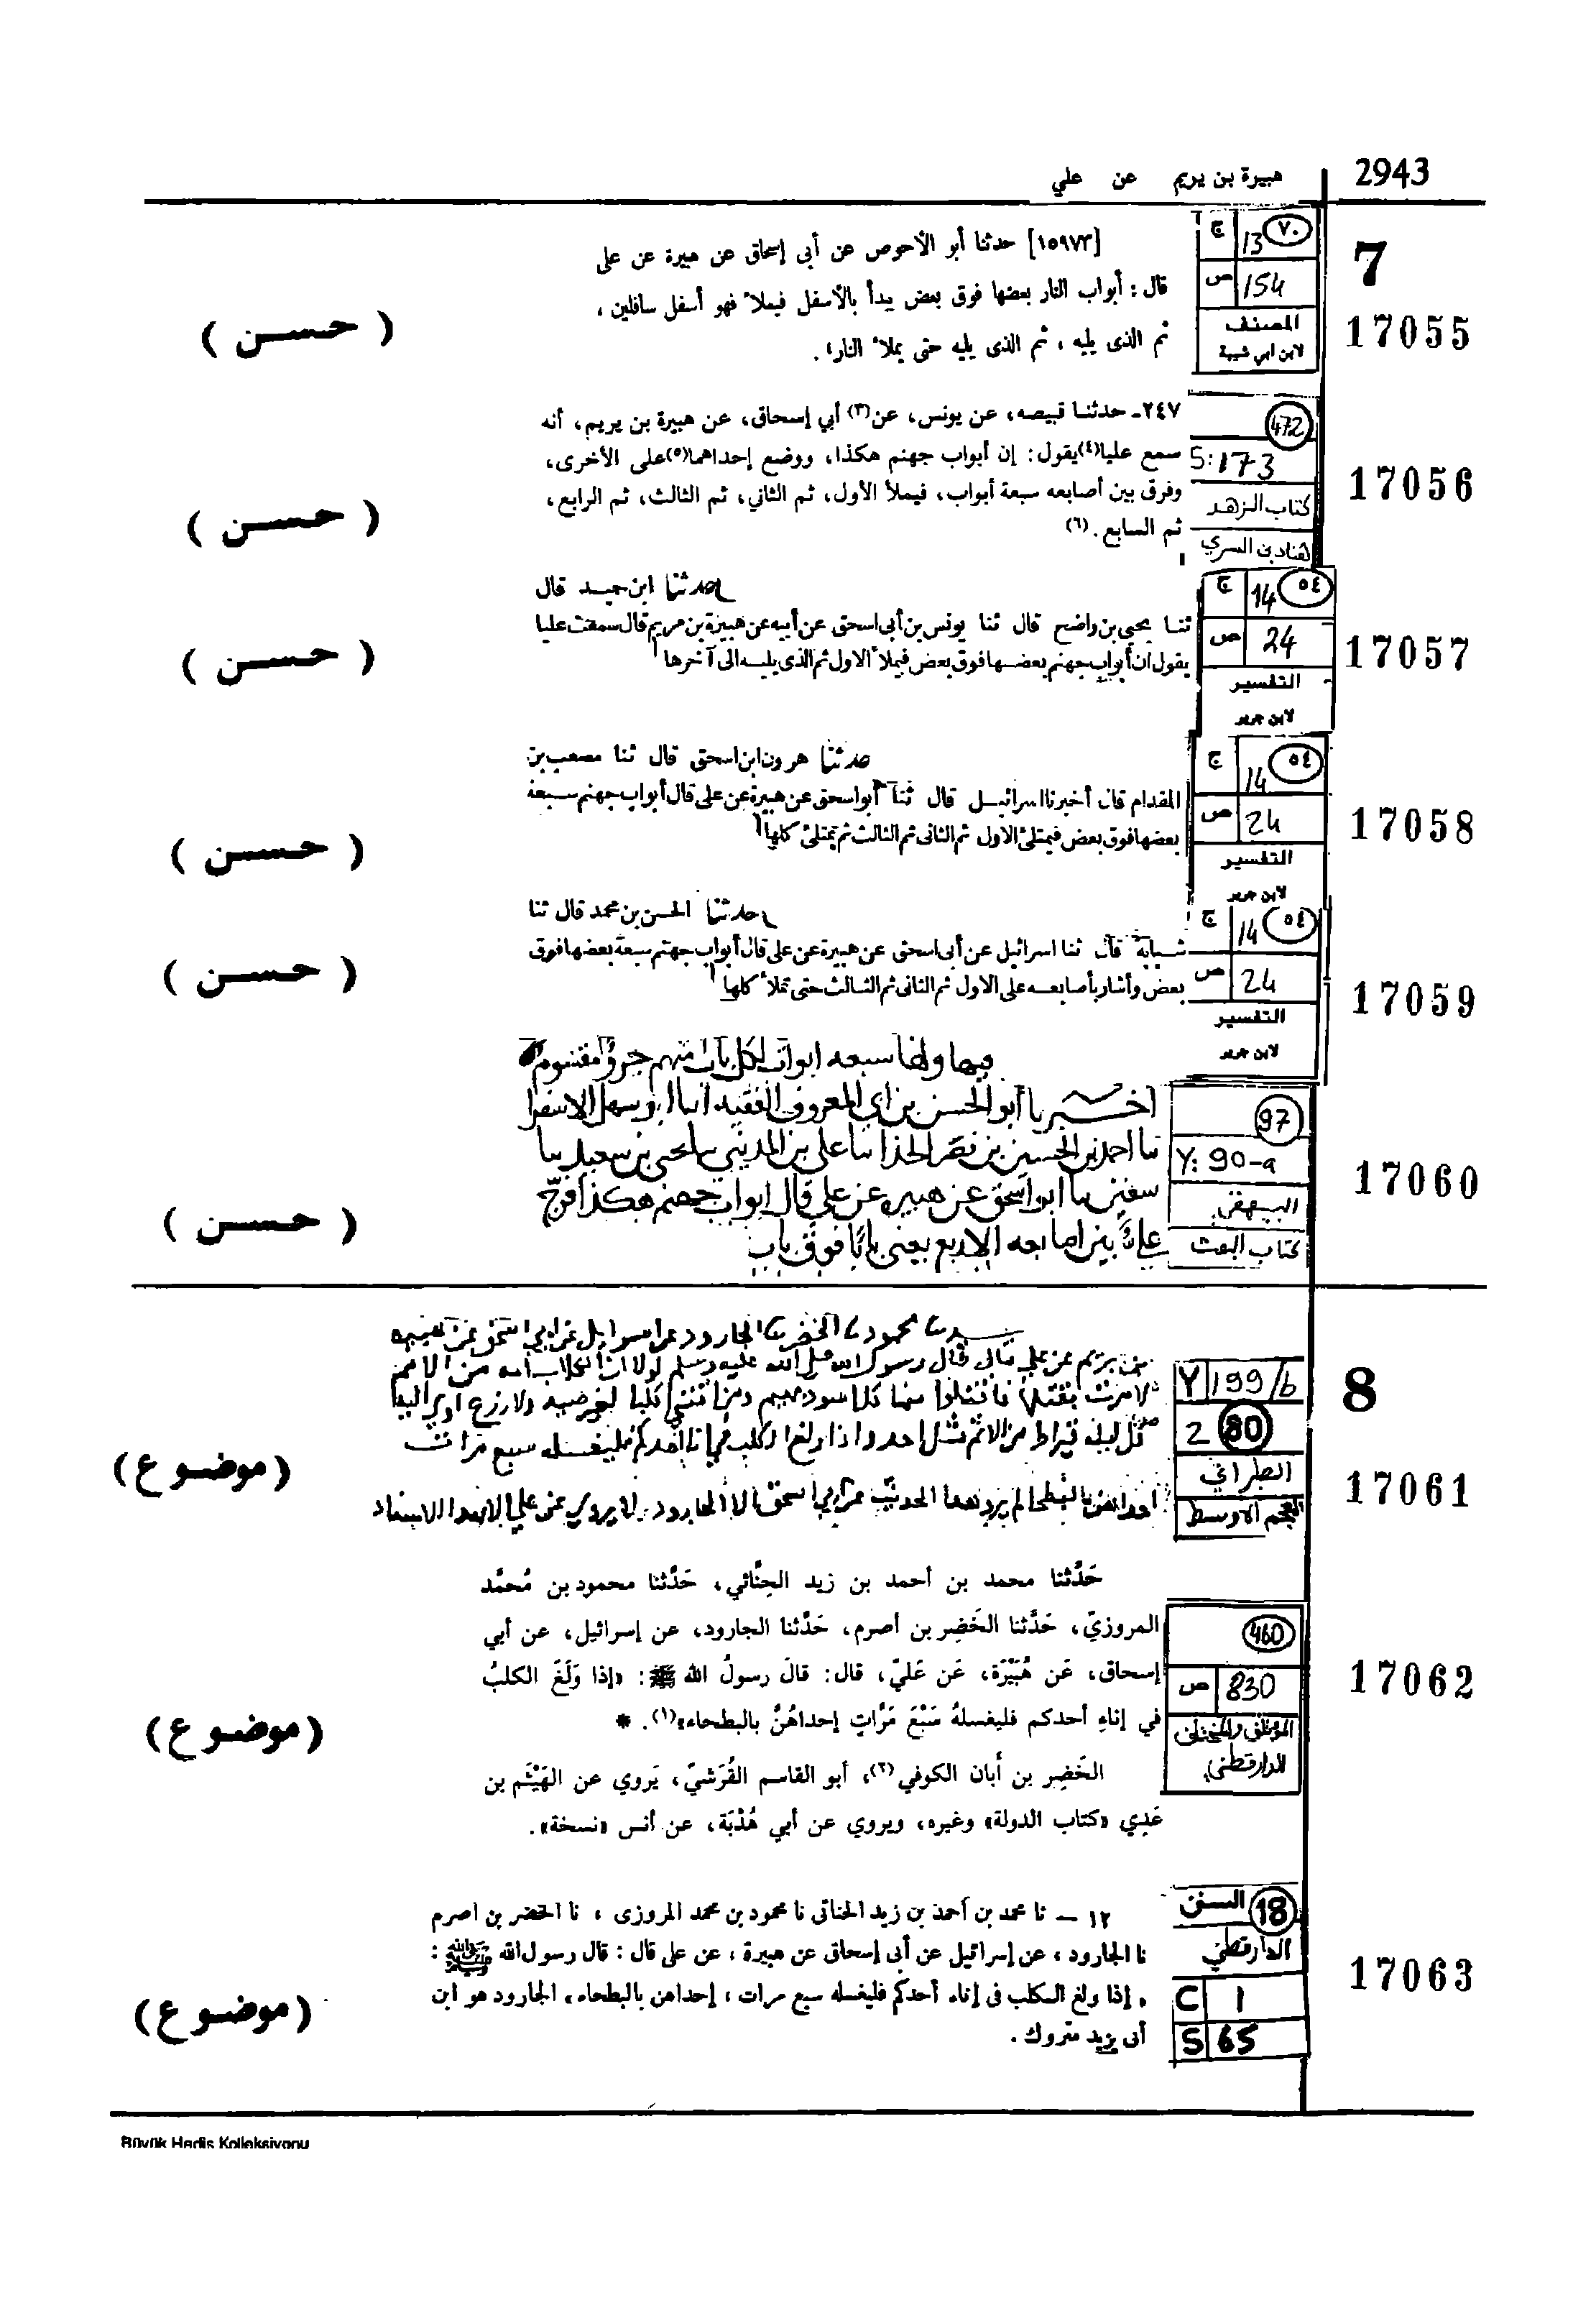 2943
هبيرة بن يريم عن علي
7
ج 13 ٧٠
ص 154
المصنف
لابن ابي شيبة
17055
[١٥٩٧٣] حدثنا أبو الأحوص عن أبى إسحاق عن هبيرة عن على
قال : أبواب النار بعضها فوق بعض يبدأ بالأسفل فيملأ فهو أسفل سافلين ،
ثم الذى يليه ، ثم الذى يليه حتى يملأ النار .
( حسن )
472
S:173
كتاب الزهد
لهناد بن السري
17056
٢٤٧ـ حدثنا قبيصه، عن يونس، عن(٣) أبي إسحاق، عن هبيرة بن يريم، أنه
سمع عليا(٤)يقول: إن أبواب جهنم هكذا، ووضع إحداهما(٥)على الأخرى،
وفرق بين أصابعه سبعة أبواب، فيملأ الأول، ثم الثاني، ثم الثالث، ثم الرابع،
ثم السابع.(٦)
( حسن )
ج 14 ٥٤
ص 24
التفسير
لابن جرير
17057
حدثنا ابن حميد قال
ثنا يحيى بن واضح قال ثنا يونس بن أبى اسحق عن أبيه عن هبيرة بن مريم قال سمعت عليا
يقول ان أبواب جهنم بعضها فوق بعض فيملأ الاول ثم الذى يليه الى آخرها
( حسن )
ج 14 ٥٤
ص 24
التفسير
لابن جرير
17058
حدثنا هرون ابن اسحق قال ثنا مصعب بن
المقدام قال أخبرنا اسرائيل قال ثنا أبو اسحق عن هبيرة عن على قال أبواب جهنم سبعة
بعضها فوق بعض فيمتلئ الاول ثم الثانى ثم الثالث ثم تمتلئ كلها
( حسن )
ج 14 ٥٤
ص 24
التفسير
لابن جرير
17059
حدثنا الحسن بن محمد قال ثنا
شبابة قال ثنا اسرائيل عن أبى اسحق عن هبيرة عن على قال أبواب جهنم سبعة بعضها فوق
بعض وأشار بأصابعه على الاول ثم الثانى ثم الثالث حتى تملأ كلها
( حسن )
97
Y: 90-a
البيهقي
كتاب البعث
17060
لها سبعه ابواب لكل باب منهم جزؤ مقسوم
اخبرنا أبو الحسن بن ابي المعروف الفقيه انبا ابو سهل الاسفرا
نبا احمد بن الحسين بن نصر الحذا نبا على بن المديني نبا يحيى بن سعيد نبا
سفين نبا ابو اسحق عن هبيره عن علي قال ابواب جهنم هكذا فرّج
بين اصابعه الاربع يعنى بابا فوق باب
( حسن )
8
Y 199/b
2 80
الطبراني
المعجم الاوسط
17061
محمود نا الخضر نا الجارود عن اسرايل عن ابي اسحق عن هبيره
بن يريم عن علي قال قال رسول الله صلى الله عليه وسلم لولا ان الكلاب امه من الامم
لامرت بقتلها فاقتلوا منها كل اسود بهيم ومن اقتنى كلبا لغير صيد ولا زرع اوى اليه
كل ليله قيراط من الاثم مثل احد واذا ولغ الكلب في انا احدكم فليغسله سبع مرات
احداهن بالبطحا لم يرو هذا الحديث عن ابي اسحق الا الجارود ولا يروي عن علي الا بهذا الاسناد
( موضوع )
460
ص 830
المؤتلف والمختلف
للدارقطني
17062
حَدَّثنا محمد بن أحمد بن زيد الحِنَّائي، حَدَّثنا محمود بن مُحمَّد
المروزيّ، حَدَّثنا الخَضِر بن أصرم، حَدَّثنا الجارود، عن إسرائيل، عن أبي
إسحاق، عَن هُبَيْرَة، عَن عَليّ، قال: قالَ رسولُ الله ﷺ: «إذا وَلَغَ الكلبُ
في إناءِ أحدكم فليغسلهُ سَبْعَ مَرَّاتٍ إحداهُنَّ بالبطحاء»(١). *
الخَضِر بن أبان الكوفي(٢)، أبو القاسم القُرَشيّ، يَروي عن الهَيْثَم بن
عَدِي «كتاب الدولة» وغيره، ويروي عن أبي هُدْبَة، عن أنس «نسخة».
( موضوع )
السنن 18
الدارقطني
C 1
S 65
17063
١٢ – نا محمد بن أحمد بن زيد الحنائى نا محمود بن محمد المروزى ، نا الخضر بن أصرم
نا الجارود ، عن إسرائيل عن أبى إسحاق عن هبيرة ، عن على قال : قال رسول الله ﷺ :
« إذا ولغ الكلب فى إناء أحدكم فليغسله سبع مرات ، إحداهن بالبطحاء ، الجارود هو ابن
أبى يزيد متروك .
( موضوع )
Büyük Hadis Kolleksiyonu